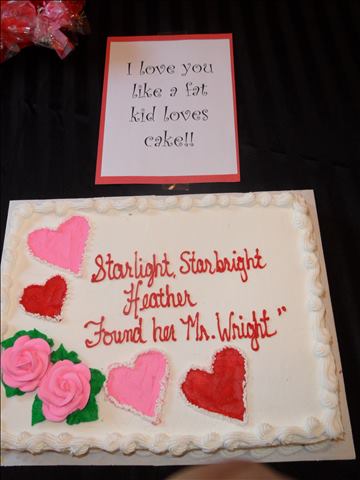 I love you
like a fat
kid loves
cake!!
Starlight, Starbright
Heather
Found her Mr. Wright"